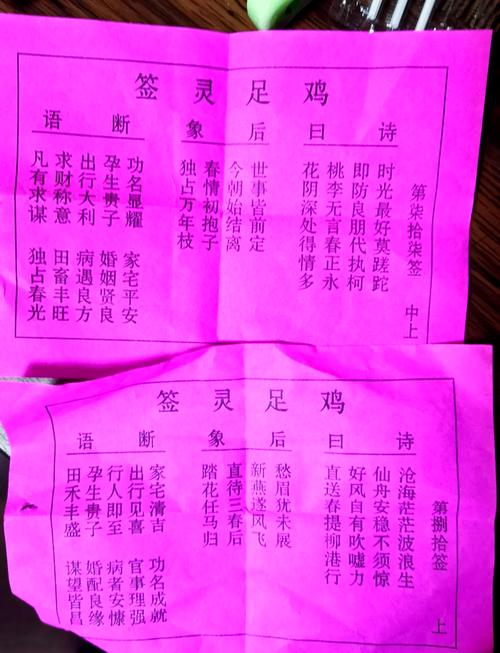 鸡足灵签
第柒拾柒签 中上
诗曰
时光最好莫蹉跎
即防良朋代执柯
桃李无言春正永
花阴深处得情多
后象
世事皆前定
今朝始结离
春情初抱子
独占万年枝
断语
功名显耀 家宅平安
孕生贵子 婚姻贤良
出行大利 病遇良方
求财称意 田畜丰旺
凡有求谋 独占春光
鸡足灵签
第捌拾签 上
诗曰
沧海茫茫波浪生
仙舟安稳不须惊
好风自有吹嘘力
直送春提柳港行
后象
愁眉犹未展
新燕遂风飞
直待三春后
踏花任马归
断语
家宅清吉 功名成就
出行见喜 官事理强
行人即至 病者安慷
孕生贵子 婚配良缘
田禾丰盛 谋望皆昌